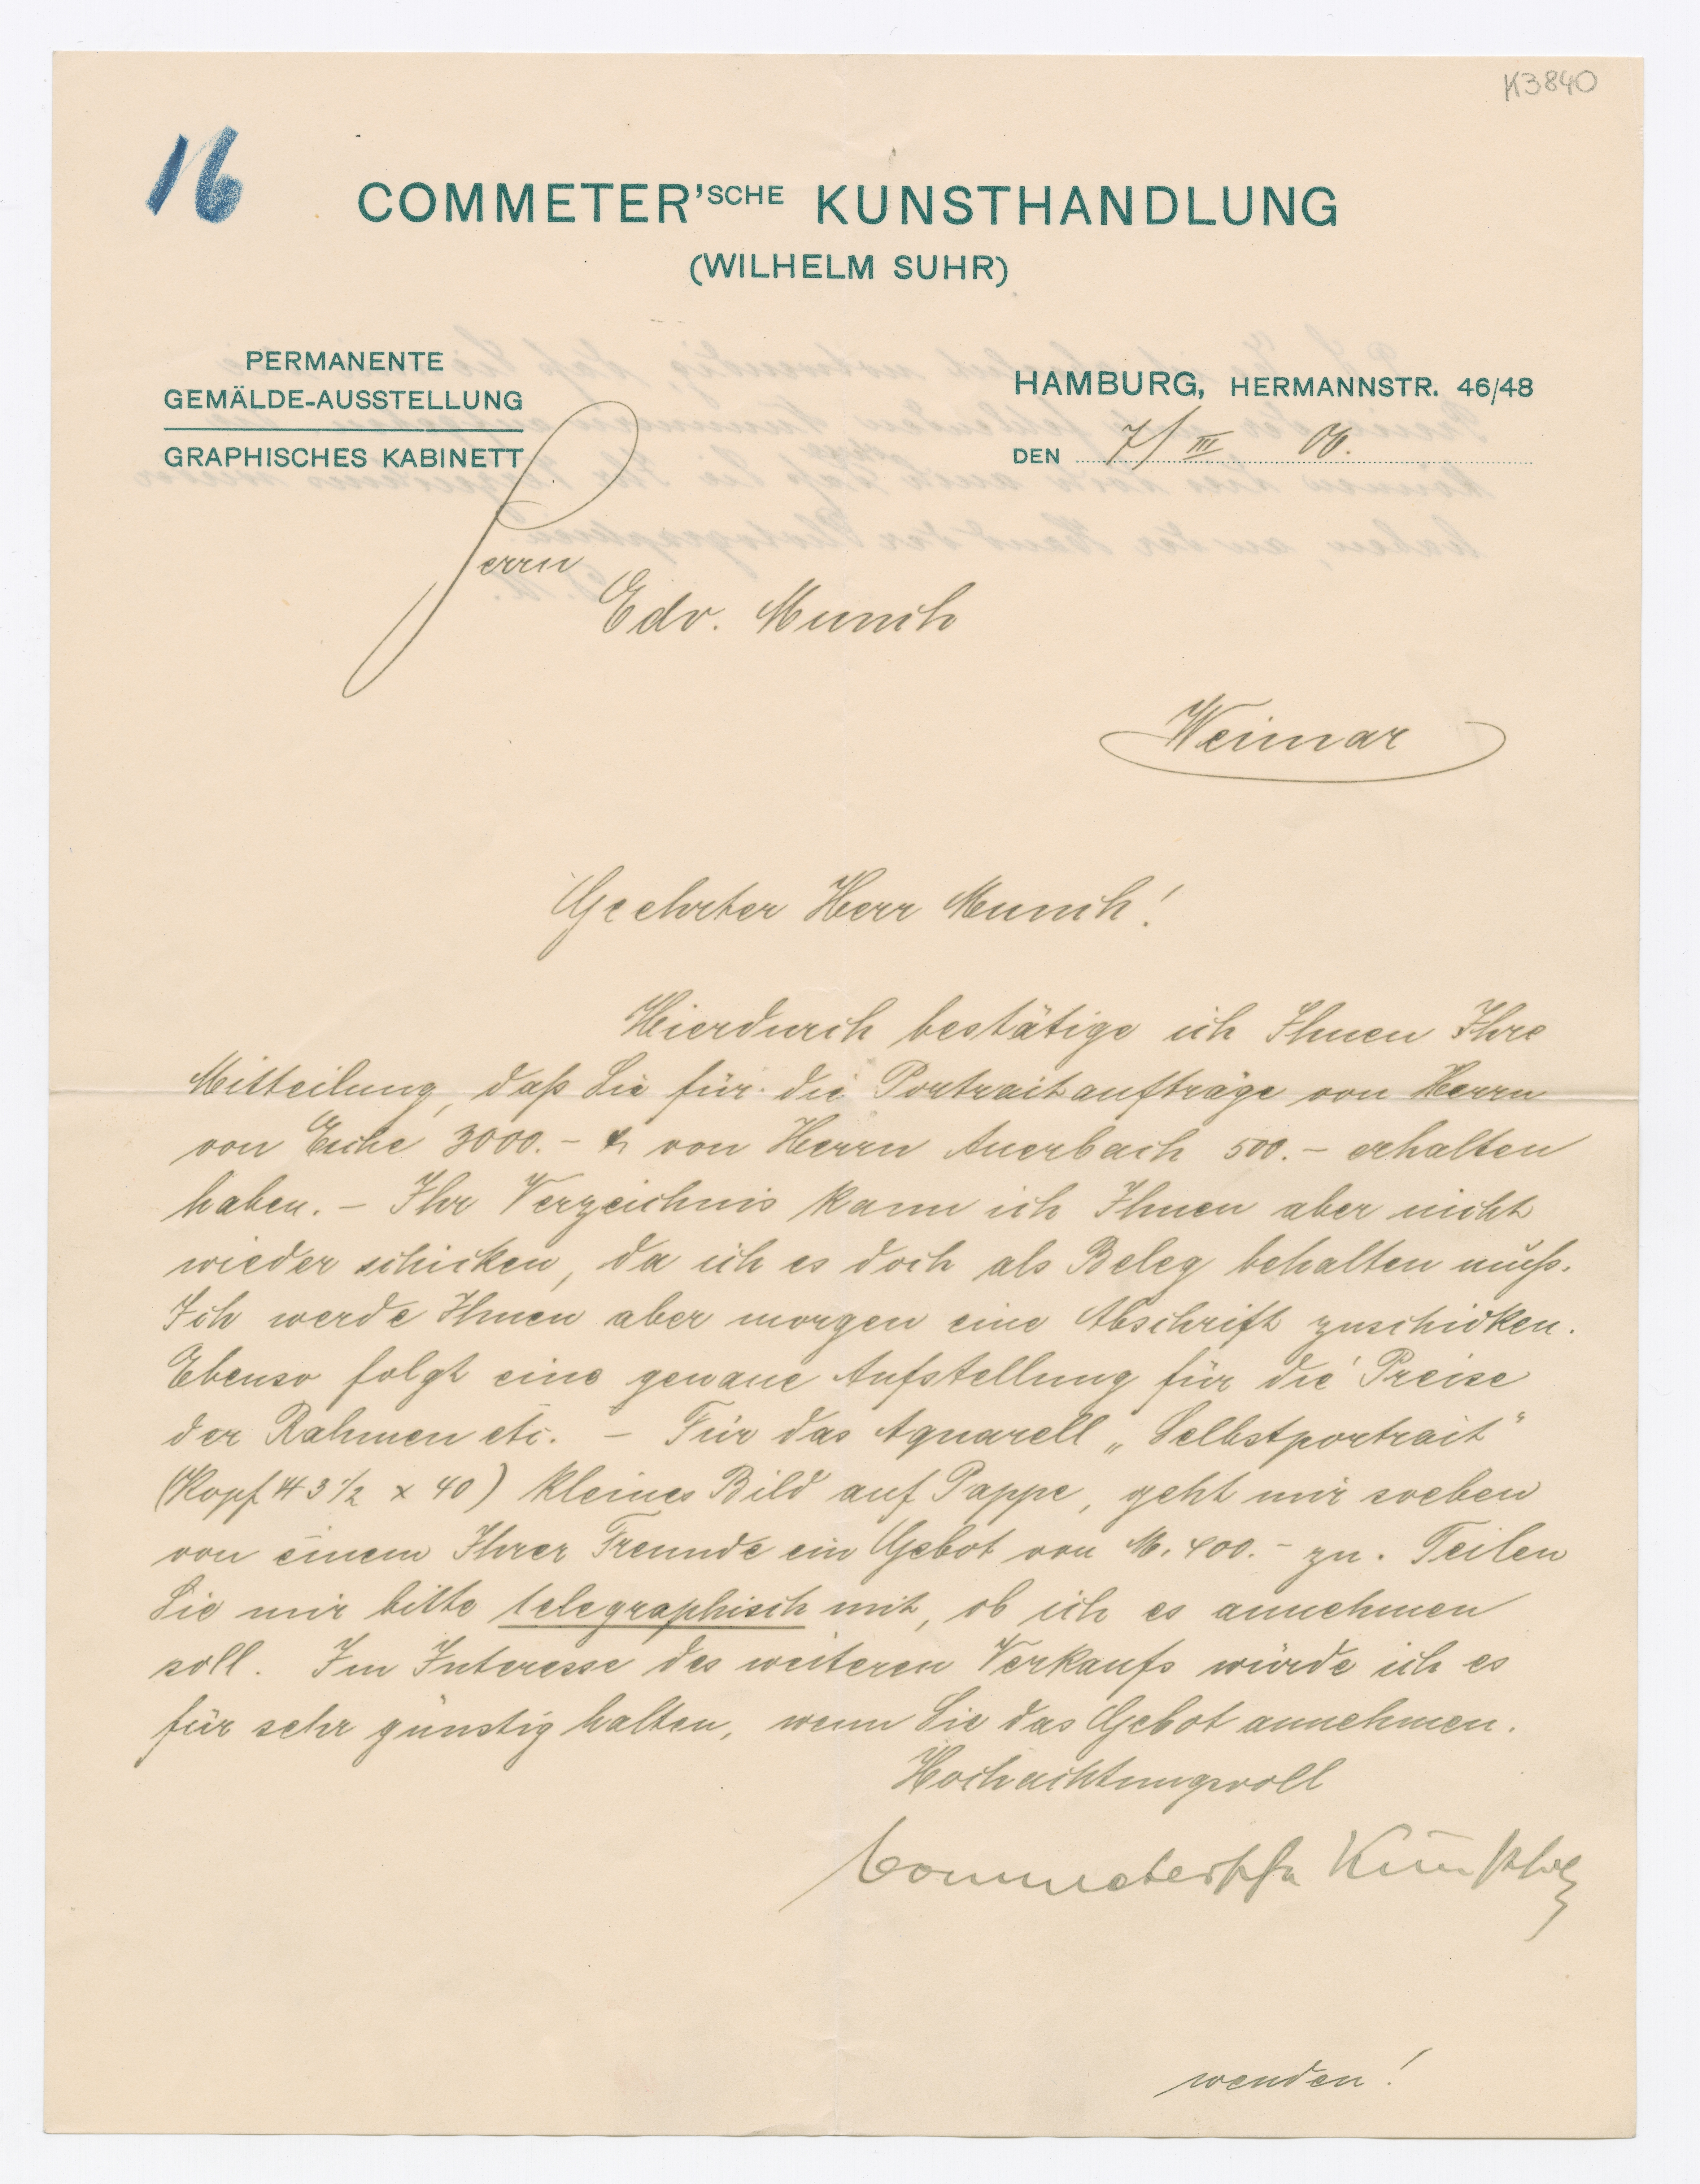 K3840
16
COMMETER'SCHE KUNSTHANDLUNG
(WILHELM SUHR)
PERMANENTE
GEMÄLDE-AUSSTELLUNG
GRAPHISCHES KABINETT
HAMBURG, HERMANNSTR. 46/48
DEN 7/III 06.
Herrn
Edv. Munch
Weimar
Geehrter Herr Munch!
Hierdurch bestätige ich Ihnen Ihre
Mitteilung, daß Sie für die Portraitaufträge von Herrn
von Esche 3000.- & von Herrn Auerbach 500.- erhalten
haben. – Ihr Verzeichnis kann ich Ihnen aber nicht
wieder schicken, da ich es doch als Beleg behalten muß.
Ich werde Ihnen aber morgen eine Abschrift zuschicken.
Ebenso folgt eine genaue Aufstellung für die Preise
der Rahmen etc. – Für das Aquarell „Selbstportrait"
(Kopf 43 1/2 x 40) kleines Bild auf Pappe, geht mir soeben
von einem Ihrer Freunde ein Gebot von M. 400.- zu. Teilen
Sie mir bitte telegraphisch mit, ob ich es annehmen
soll. Im Interesse des weiteren Verkaufs würde ich es
für sehr günstig halten, wenn Sie das Gebot annehmen.
Hochachtungsvoll
Commetersche Kunsthdlg
wenden!